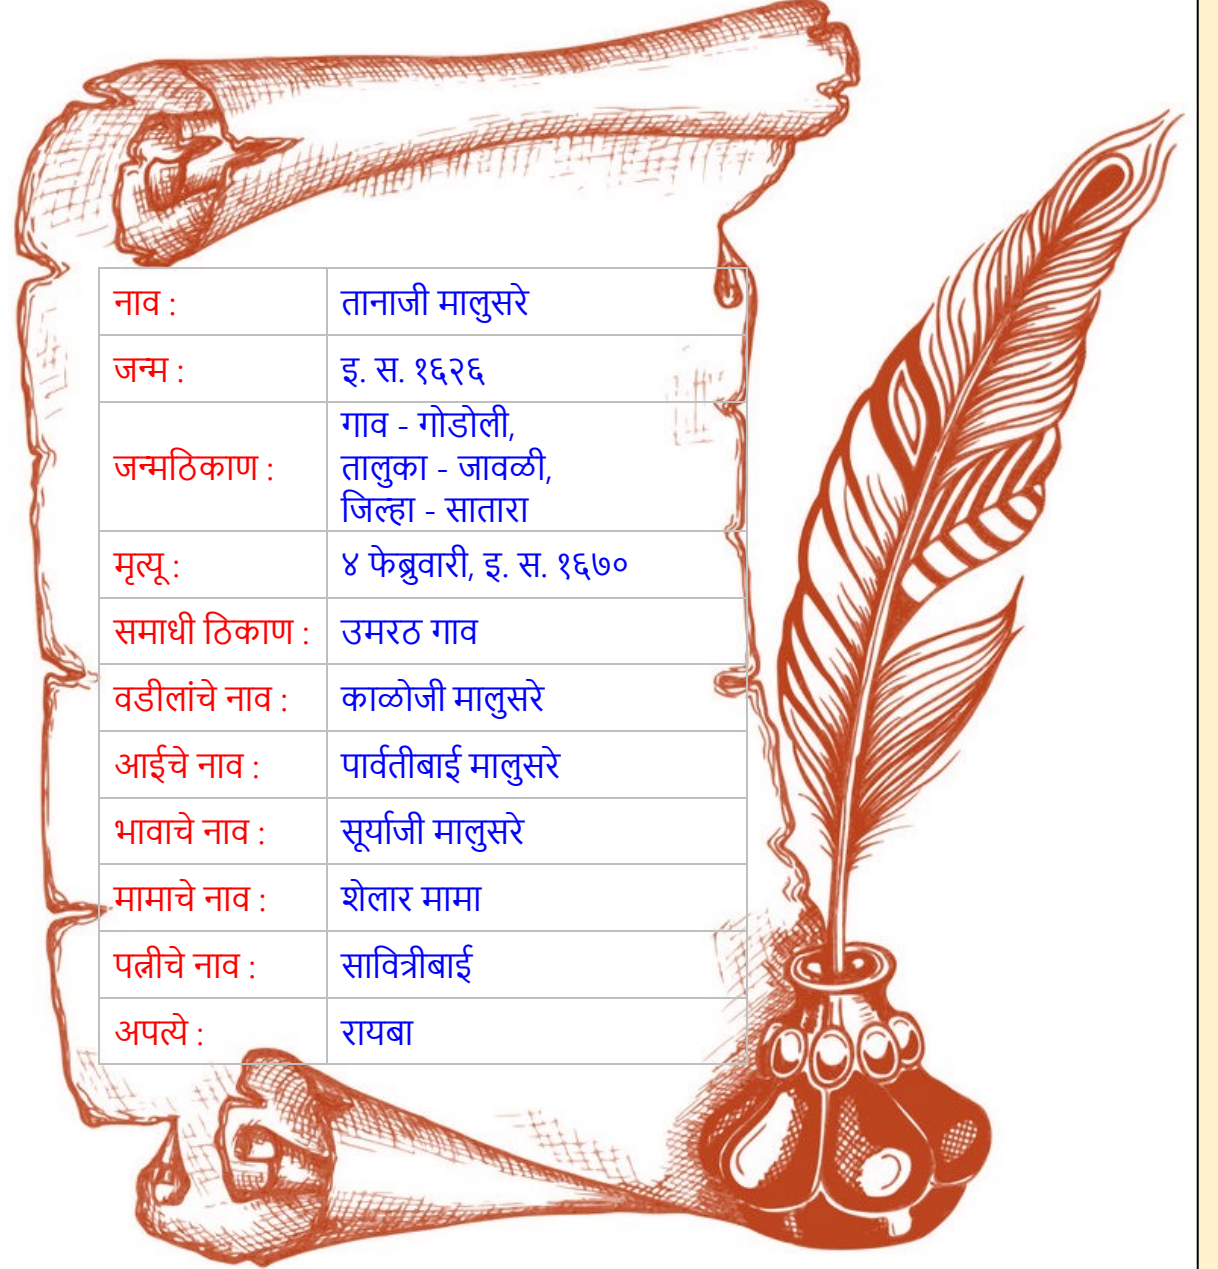 नाव : तानाजी मालुसरे
जन्म : इ. स. १६२६
जन्मठिकाण : गाव - गोडोली,
तालुका - जावळी,
जिल्हा - सातारा
मृत्यू : ४ फेब्रुवारी, इ. स. १६७०
समाधी ठिकाण : उमरठ गाव
वडीलांचे नाव : काळोजी मालुसरे
आईचे नाव : पार्वतीबाई मालुसरे
भावाचे नाव : सूर्याजी मालुसरे
मामाचे नाव : शेलार मामा
पत्नीचे नाव : सावित्रीबाई
अपत्ये : रायबा